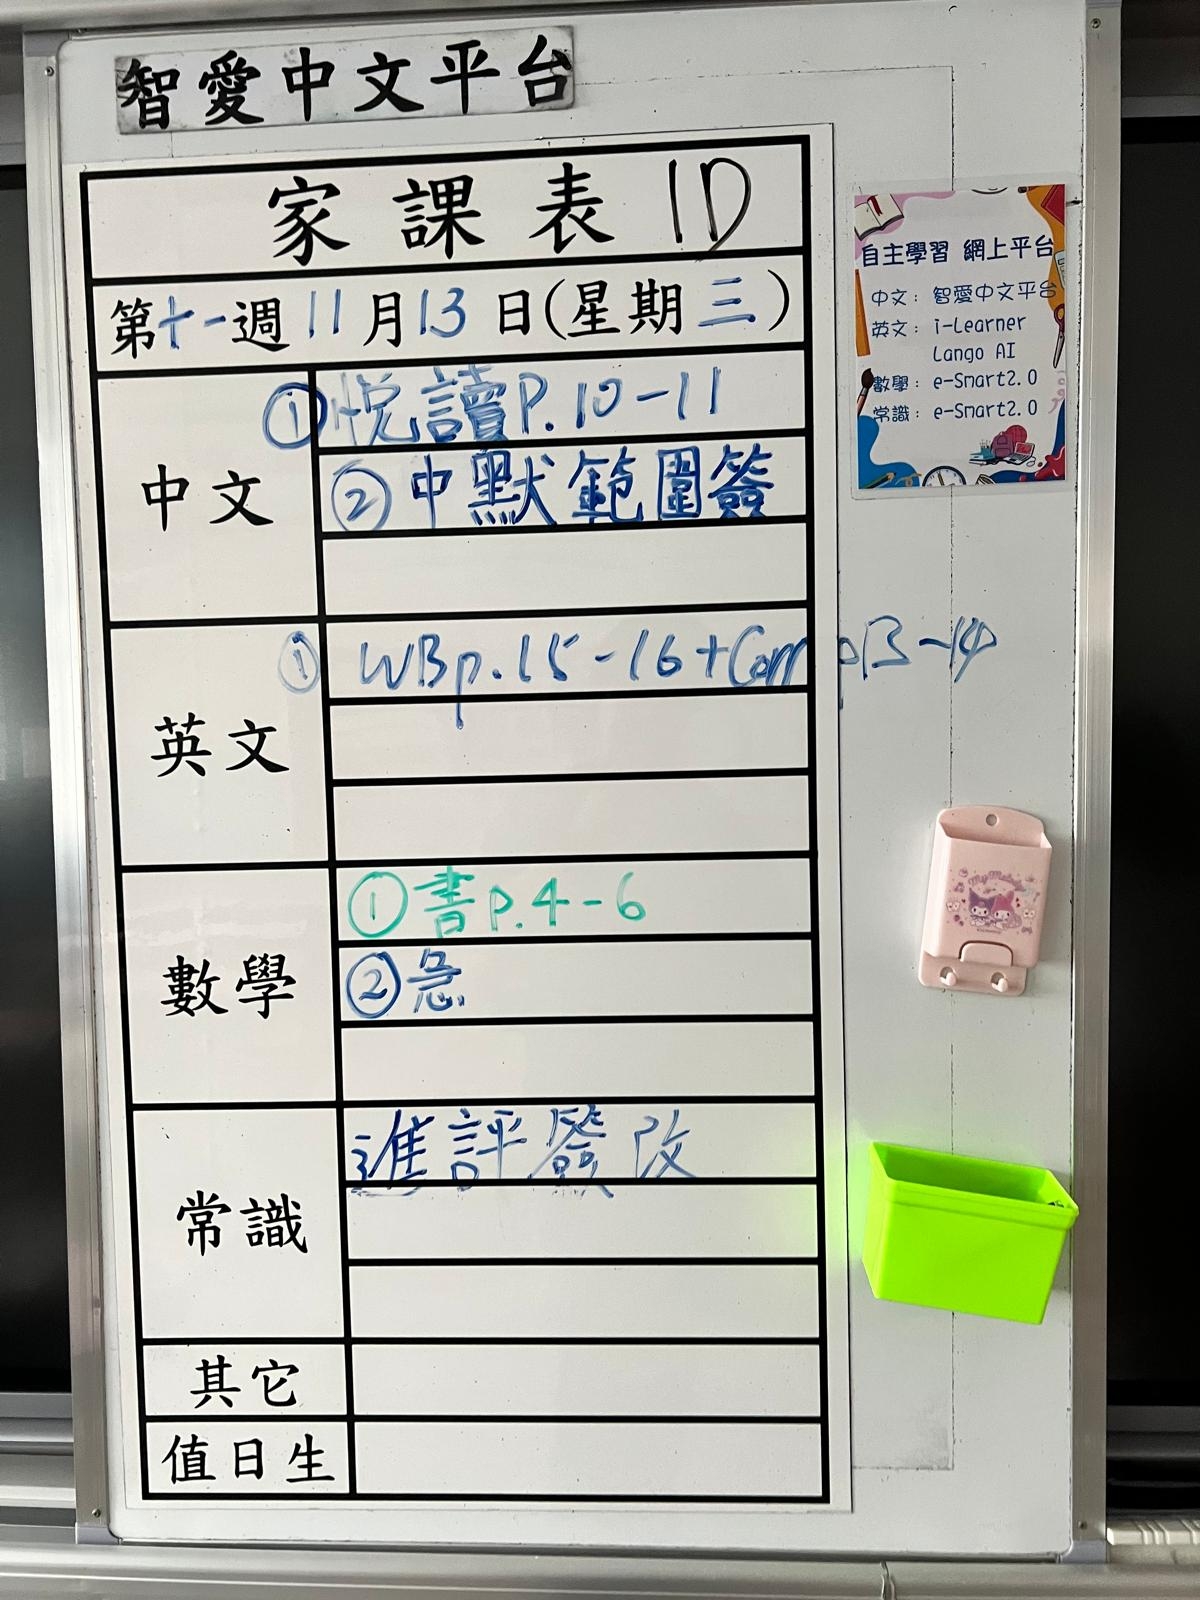 智愛中文平台
家課表 1D
第十一週11月13日(星期三)
中文
①悅讀P.10-11
②中默範圍簽
英文
① WBp.15-16+Corr p13-14
數學
①書p.4-6
②急
常識
進評簽改
其它
值日生
自主學習 網上平台
中文：智愛中文平台
英文：i-Learner
Lango AI
數學：e-Smart2.0
常識：e-Smart2.0
My Melody